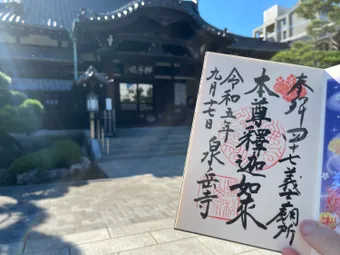 奉拝 四十七義士廟所
本尊釋迦如来
令和五年
九月十七日
泉岳寺